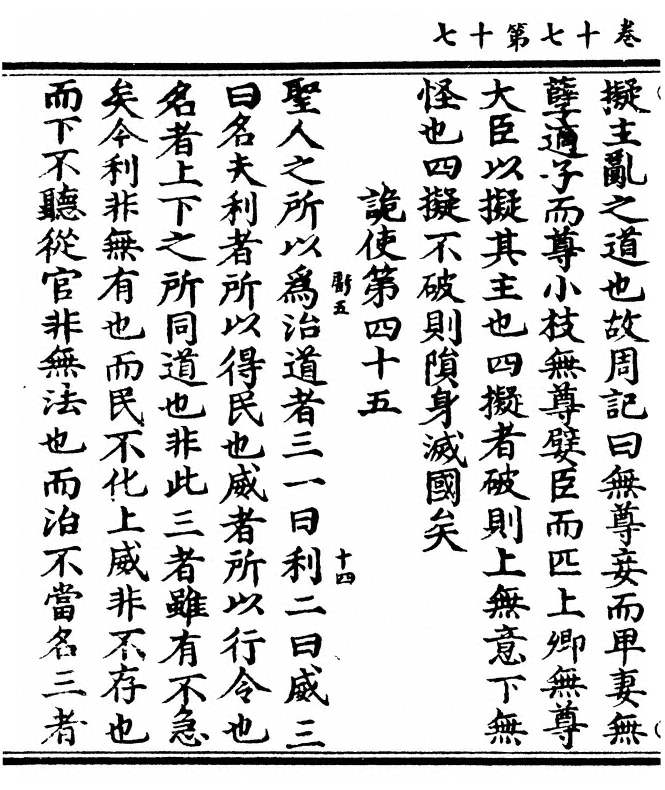 卷十七第十七
擬主亂之道也故周記曰無尊妾而卑妻無
孽適子而尊小枝無尊嬖臣而匹上卿無尊
大臣以擬其主也四擬者破則上無意下無
怪也四擬不破則隕身滅國矣
詭使第四十五
聖人之所以爲治道者三一曰利二曰威三
曰名夫利者所以得民也威者所以行令也
名者上下之所同道也非此三者雖有不急
矣今利非無有也而民不化上威非不存也
而下不聽從官非無法也而治不當名三者
十四